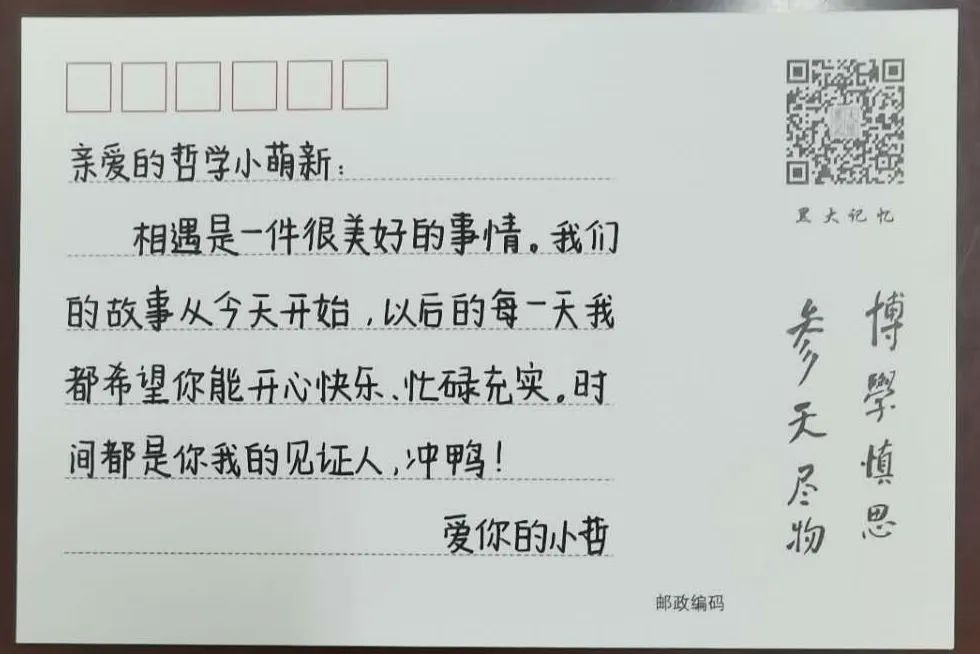 亲爱的哲学小萌新：
相遇是一件很美好的事情。我们
的故事从今天开始，以后的每一天我
都希望你能开心快乐、忙碌充实。时
间都是你我的见证人，冲鸭！
爱你的小哲
黑大记忆
博學慎思
参天尽物
邮政编码